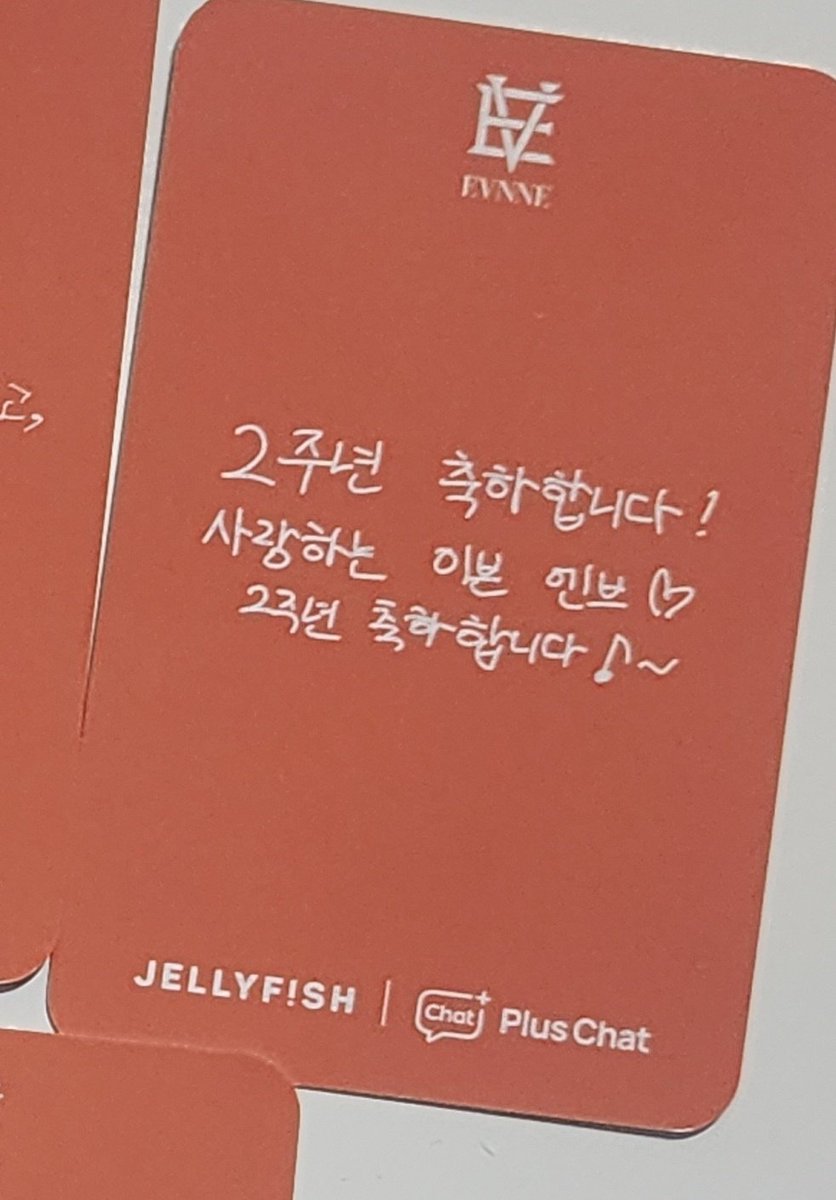 EVNNE
고,
2주년 축하합니다!
사랑하는 이븐 엔브♡
2주년 축하합니다♪~
JELLYF!SH | Chat+ Plus Chat